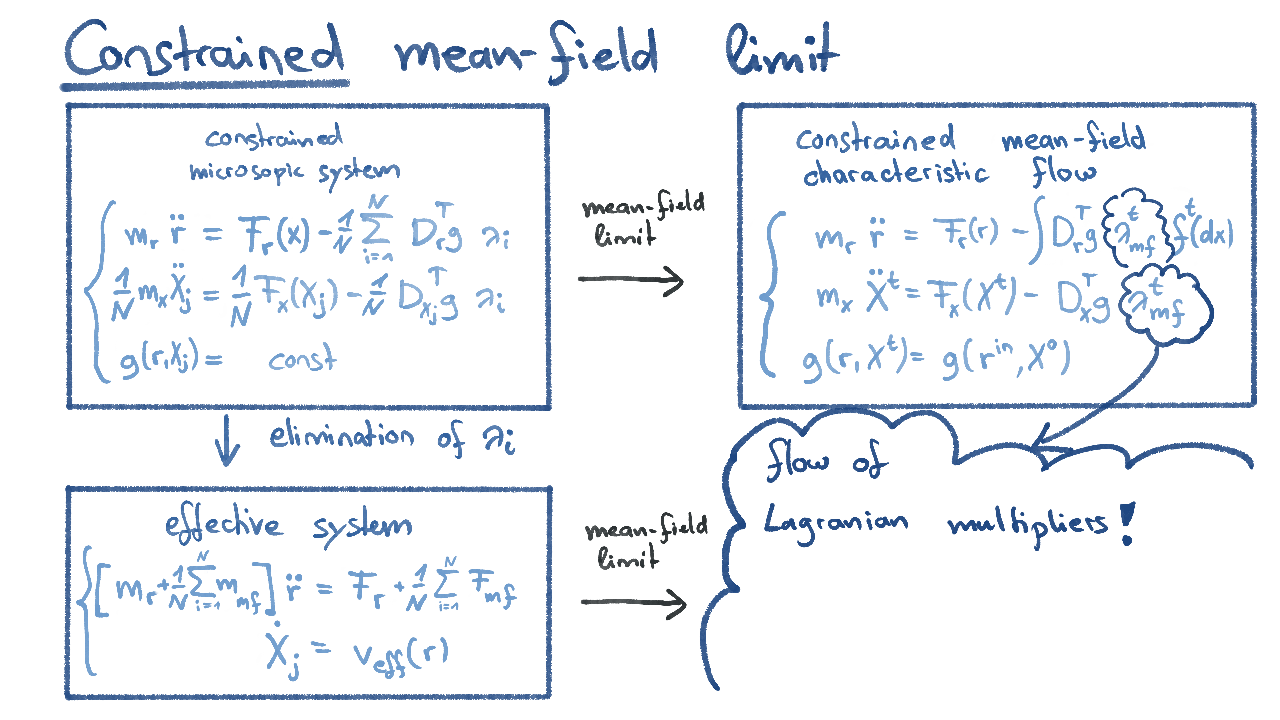 Constrained mean-field limit
constrained
microsopic system
m_r r̈ = F_r(x) - 1/N ∑_{i=1}^N D_r^T g λ_i
1/N m_x Ẍ_j = 1/N F_x(X_j) - 1/N D_{X_j}^T g λ_i
g(r, X_j) = const
mean-field
limit
constrained mean-field
characteristic flow
m_r r̈ = F_r(r) - ∫ D_r^T g λ_mf^t f^t(dx)
m_x Ẍ^t = F_x(X^t) - D_x^T g λ_mf^t
g(r, X^t) = g(r^in, X^0)
elimination of λ_i
effective system
[m_r + 1/N ∑_{i=1}^N m_mf] r̈ = F_r + 1/N ∑_{i=1}^N F_mf
Ẋ_j = v_eff(r)
mean-field
limit
flow of
Lagranian multipliers!